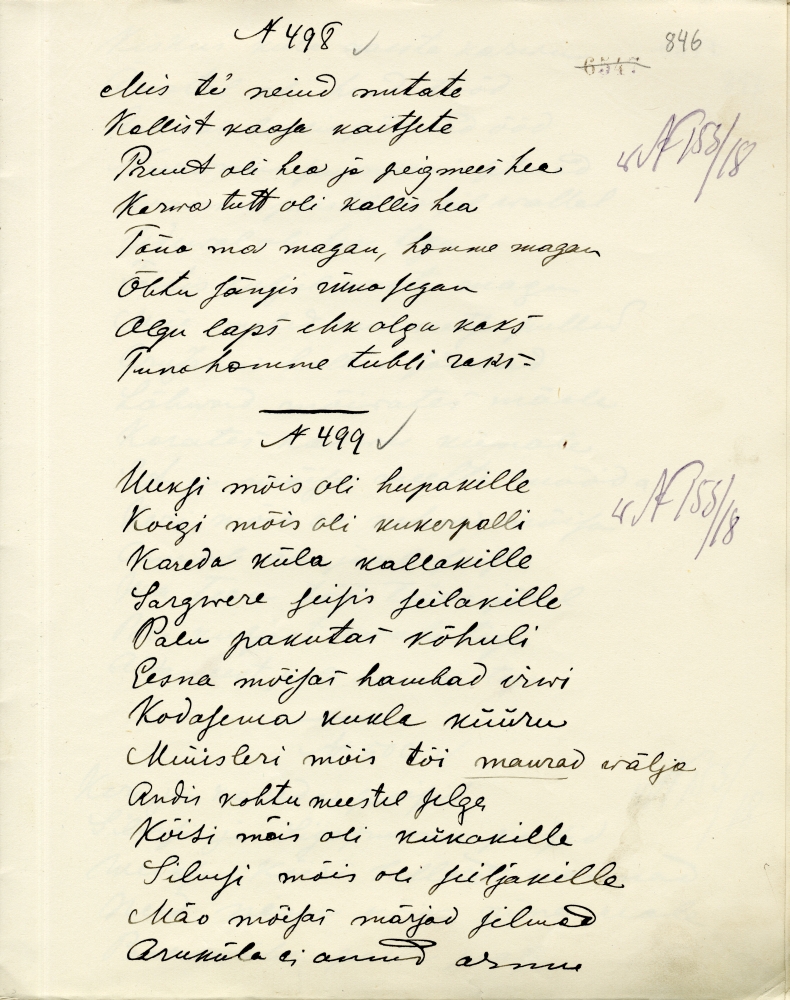 N 498
846
6547
Mis te neind nutate
Kallist kaasa kaitsete
Pruut oli hea ja peigmees hea
Karwa tutt oli kallis hea
Täna ma magan, homme magan
Õhtu sängis ninasegan
Olgu laps ehk olgu kaks
Tunahomme tubli raks
N 155/18
N 499
Uuksi mõis oli hupakille
Koigi mõis oli kukerpalli
Kareda küla kallakille
Sargwere seisis seilakille
Palu pakutas kõhuli
Eesna mõisas hambad irwi
Kodasema kukla küüru
Müüsleri mõis tõi maurad wälja
Andis kohtumeestel selga
Köisi mõis oli kükakille
Silmsi mõis oli seiljakille
Mäo mõisas märjad silmad
Aruküla ei annud armu
N 155/18